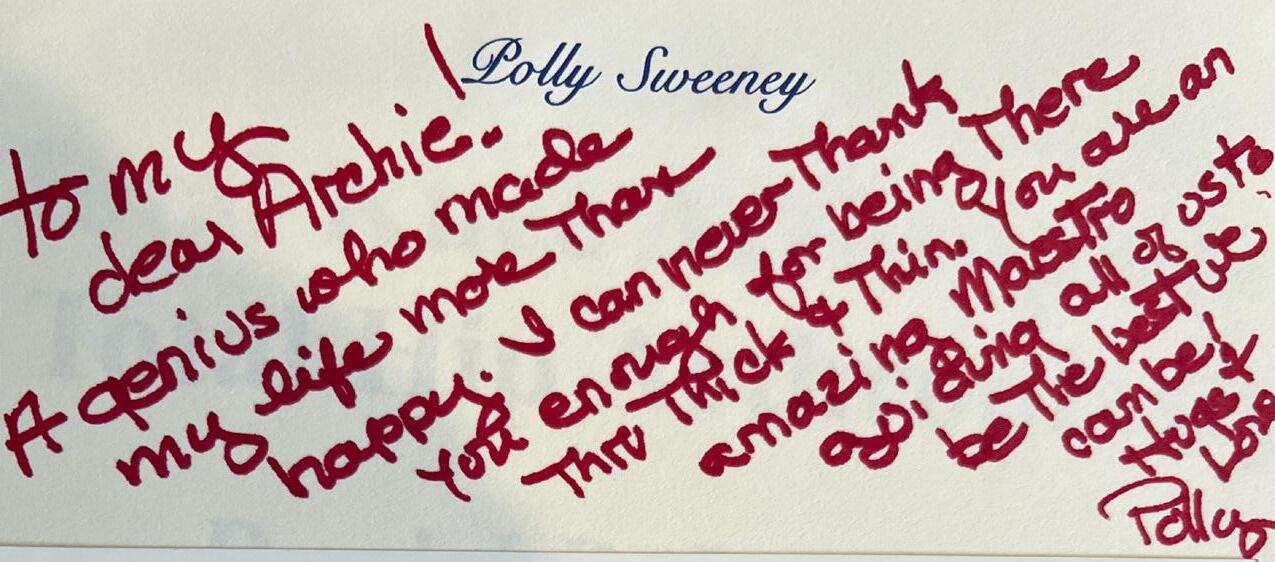 Polly Sweeney
to my
dear Archie.
A genius who made
my life more Than
happy. I can never Thank
you enough for being There
Thru Thick & Thin. You are an
amazing Maestro
guiding all of us to
be The best we
can be!
Huge
Love
Polly